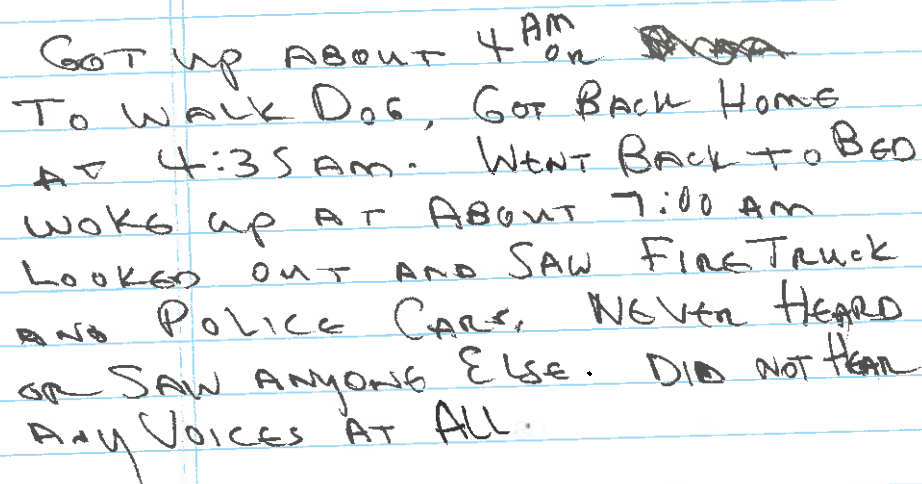 GOT UP ABOUT 4 AM ON
TO WALK DOG, GOT BACK HOME
AT 4:35 AM. WENT BACK TO BED
WOKE UP AT ABOUT 7:00 AM
LOOKED OUT AND SAW FIRE TRUCK
AND POLICE CARS, NEVER HEARD
OR SAW ANYONE ELSE. DID NOT HEAR
ANY VOICES AT ALL.